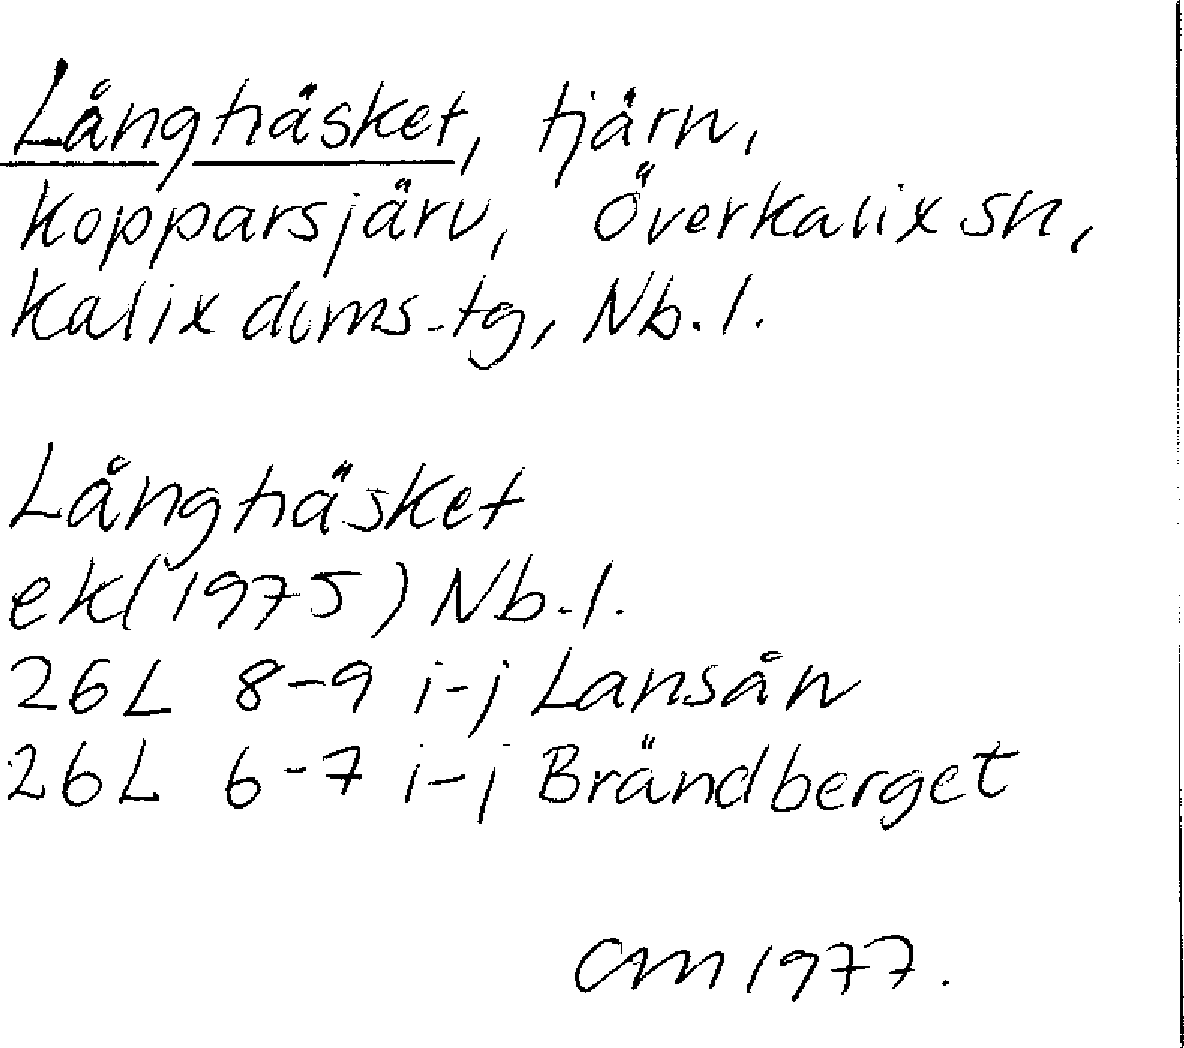 Långhäsket, tjärn,
Kopparsjärv, Överkalix sn,
Kalix doms.tg, Nb.l.
Långhäsket
ek(1975) Nb.l.
26L 8-9 i-j Lansån
26L 6-7 i-j Brändberget
CM 1977.